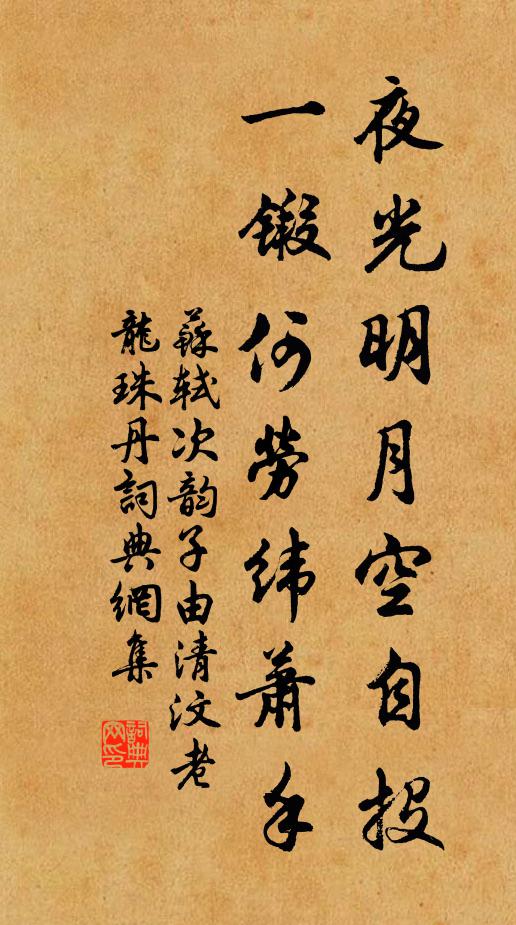 夜光明月空自投
一鍛何勞緯蕭手
蘇軾次韵子由清汶老
龍珠丹詞典網集
詞典網印